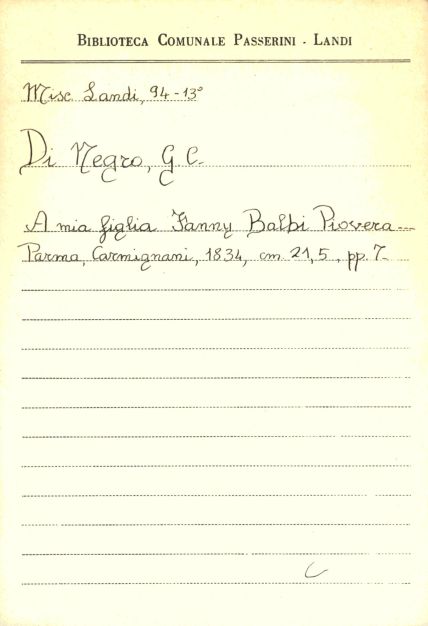 BIBLIOTECA COMUNALE PASSERINI - LANDI
Misc Landi, 94-13°
Di Negro, G C.
A mia figlia Fanny Balbi Piovera...
Parma, Carmignani, 1834, cm. 21,5, pp. 7-